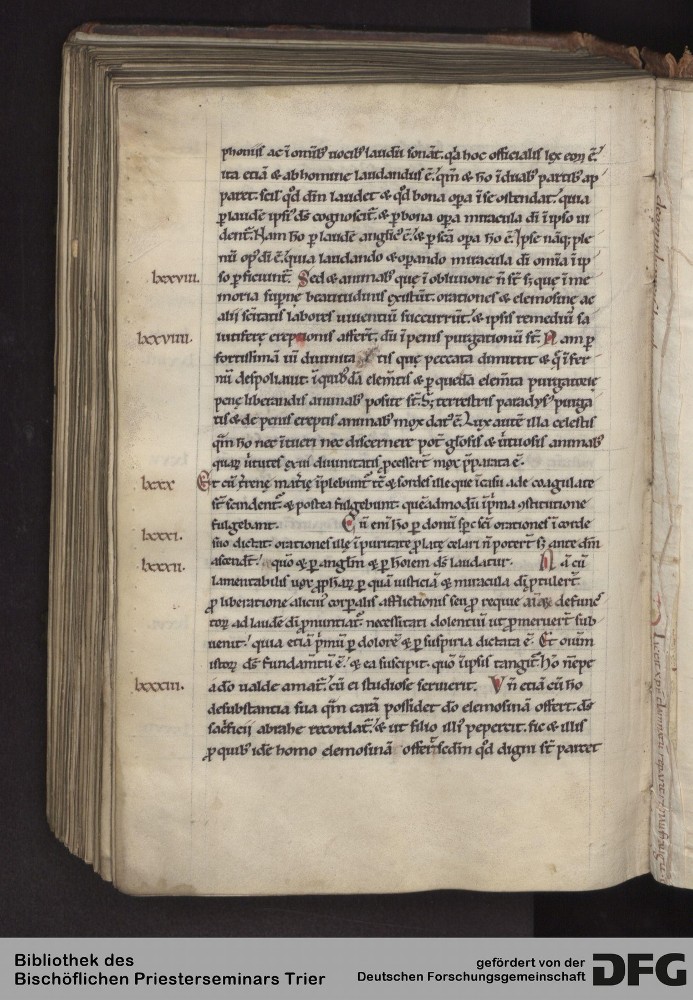 phonis ac ī omīb; uocib; laudū sonāt. q̄a hoc officialis lex eoꝝ ē.
ita etiā & ab homine laudandus ē. qm̄ & hō ī duab; partib; ap
paret. scil' qd̄ dm̄ laudet & qd̄ bona oꝑa ī se ostendat. quia
ꝑ laudē ipsi' ds̄ cognoscit̄. & ꝑ bona oꝑa miracula dī ī ipso ui
dent̄. Nam hō ꝑ laudē anglic' ē. & ꝑ sc̄a oꝑa hō ē. Ipse naq; ple
nū op' dī ē. quia laudando & oꝑando miracula dī om̄ia ī ip
lxxviii. so ꝑficiunt̄. Sed & animab; quę ī obliuione n̄ st̄ s; quę ī me
moria supnę beatitudinis existūt. orationes & elemosinę ac
alii sc̄itatis labores uiuentiū succurrūt. & ipsis remediū sa
lxxviiii. lutiferę ereptionis affert̄. dū ī penis purgationū st̄. Nam ꝑ
fortissimā uī diuinitatis quę peccata dimittit & q̄ īfer
nū despoliauit. ī quib;dā elem̄tis & ꝑ quedā elem̄ta purgatorie
penę liberandis animab; posite st̄. S; terrestris paradys' purga
tis & de penis ereptis animab; mox dat' ē. Lux autē illa celestis
qm̄ hō nec ītueri nec discernere pot̄ gl'osis & ūtuosis animab;
quaꝝ ūtutes ex ui diuinitatis p̄cesser̄t mox p̄parata ē.
lxxx Et cū t̄renę mat̄ię īplebunt̄ t̄c & sordes ille que ī casu ade coagulate
st̄ scindent̄. & postea fulgebunt. queadmodū ī pima ꝯstitutione
fulgebant. Cū eni hō ꝑ donū spc̄ sc̄i orationes ī corde
lxxxi. suo dictat. orationes ille ī puritate ꝓlatę celari n̄ potert̄ s; ante dm̄
lxxxii. ascendt̄. quō & ꝑ angl'm & ꝑ hoiem ds̄ laudatur. Nā cū
lamentabilis uox ꝓphaꝝ ꝑ quā iusticiā & miracula dī ꝓtulert̄
ꝓ liberatione alicui' corꝑalis afflictionis seu ꝓ requie aīaꝝ defunc
toꝝ ad laudē dī ꝓnuntiat̄. necessitati dolentiū ut ꝓmeruert̄ sub
uenit. quia etiā pimū ꝑ dolorē & ꝑ suspiria dictata ē. Et oīum
istoꝝ ds̄ fundam̄tū ē. & ea suscipit. quō ī ipsis tangit̄. Hō nēpe
lxxxiii. a dō ualde amat̄. cū ei studiose seruierit. Vn̄ etiā cū hō
de substantia sua qm̄ carā possidet dō elemosinā offert. ds̄
sac̄ficii abrahe recordat̄. & ut filio illi' pepercit. sic & illis
ꝓ quib; idē homo elemosinā offert sed̄m qd̄ digni st̄ parcet
Bibliothek des
Bischöflichen Priesterseminars Trier
gefördert von der
Deutschen Forschungsgemeinschaft
DFG